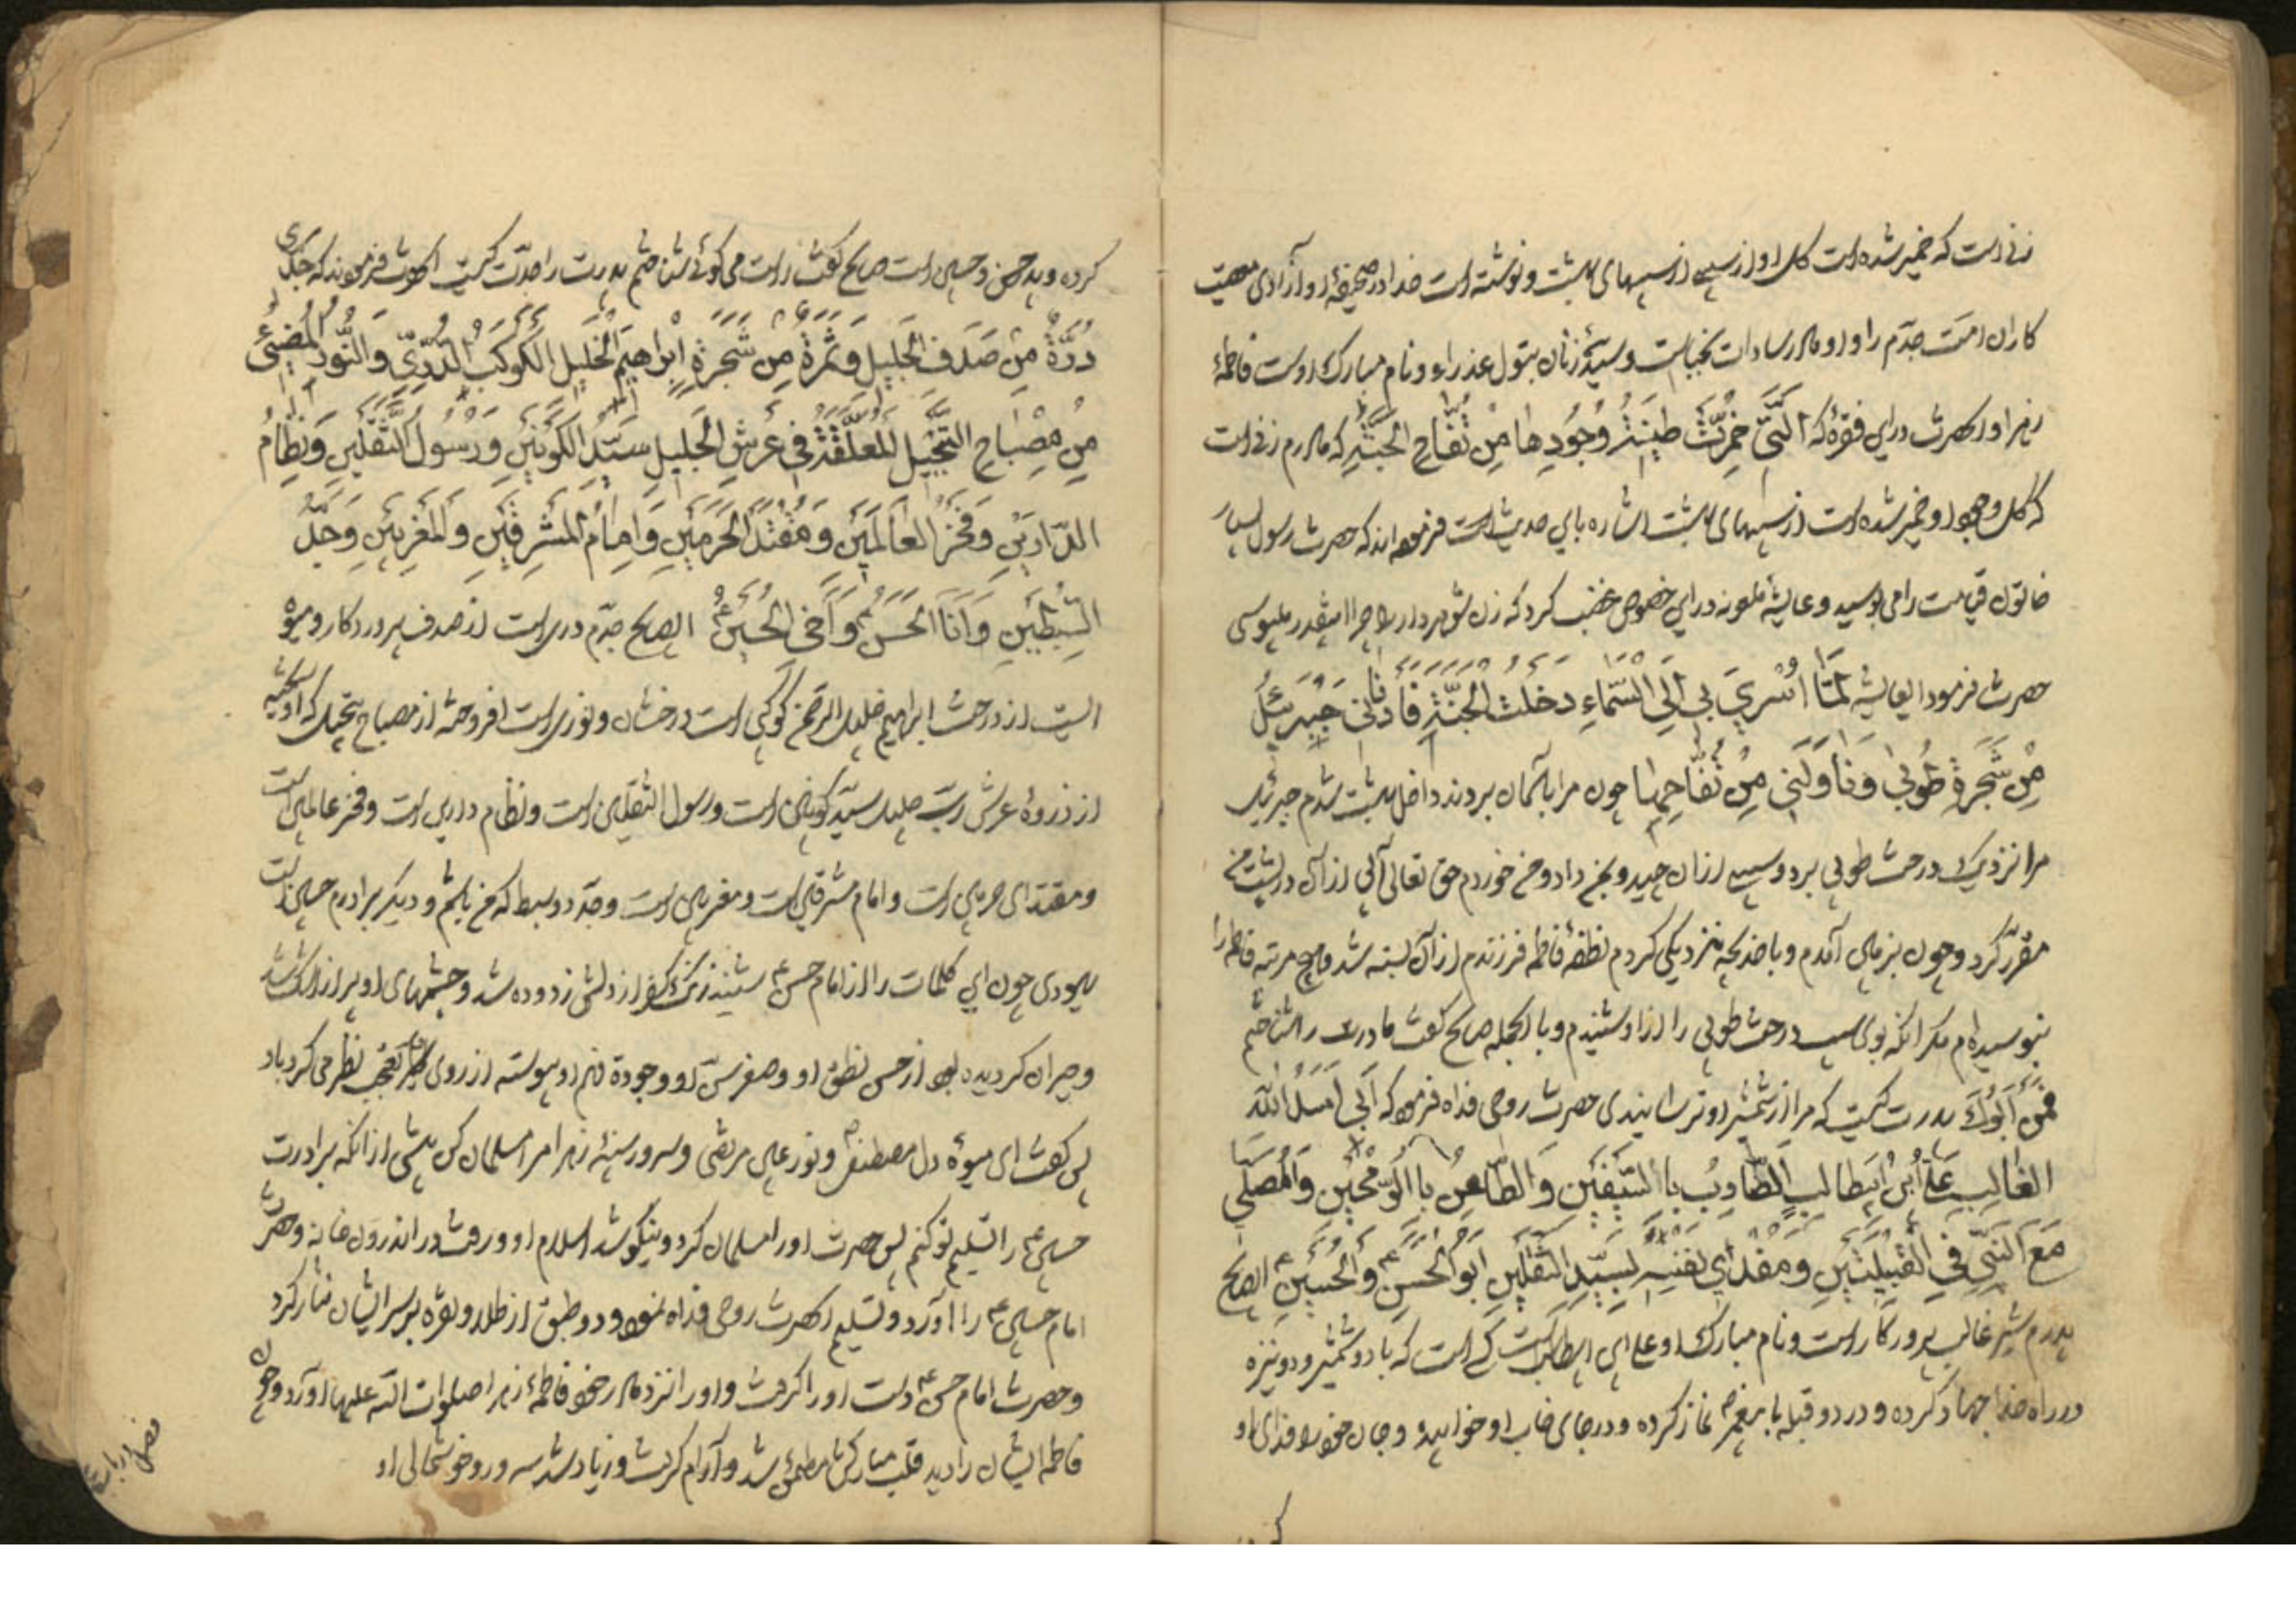 زنی است که خمیر شده است گل او از سیبی از سیبهای بهشت و نوشته است خدا در صحیفهٔ او آزادی معصیت
کاران امت جدّم را و او مادر سادات نجباست و سیّدهٔ زنان بتول عذراء و نام مبارک اوست فاطمهٔ
زهرا و انحضرت در این فقره که الَّتی خُمِّرَتْ طینَةُ وُجُودِها مِنْ تُفّاحِ الجَنَّةِ که مادرم زنی است
که گل وجود او خمیر شده است از سیبهای بهشت اشاره باین حدیث است فرموده اند که حضرت رسول بسیار
خاتون قیامت را می بوسید و عایشه ملعونه در این خصوص غضب کرد که زن شوهردار را چرا اینقدر میبوسی
حضرت فرمود ایعایشه لَمّا اُسْرِیَ بی اِلَی السَّماءِ دَخَلْتُ الجَنَّةَ فَاَدْنانی جَبْرَئیلُ
مِنْ شَجَرَةِ طُوبی وَناوَلَنی مِنْ تُفّاحِها چون مرا بآسمان بردند داخل بهشت شدم جبرئیل
مرا نزدیک درخت طوبی برد و سیبی از ان چید و بمن داد و من خوردم حق تعالی آبی از آن در پشت من
مقرّر کرد و چون بزمین آمدم و با خدیجه نزدیکی کردم نطفهٔ فاطمه فرزندم از آن بسته شد و هیچ مرتبه فاطمه را
نبوسیده ام مگر انکه بوی سیب درخت طوبی را از او شنیدم و بالجمله صالح گفت مادرت را شناختم
فَمَنْ اَبُوکَ پدرت کیست که مرا از شمشیر او ترسانیدی حضرت روحی فداه فرمود که اَبی اَسَدُ اللّه
الغالِبِ عَلِیُّ ابْنُ اَبیطالِبٍ الضّارِبُ بِاالسَّیْفَیْنِ وَالطّاعِنُ بِاالرُّمْحَیْنِ وَالمُصَلّی
مَعَ النَّبیِّ فِی القِبْلَتَیْنِ وَمُفْدی نَفْسِهِ لِسَیِّدِ الثَّقَلَیْنِ اَبُو الحَسَنِ وَالحُسَیْنِ ایصالح
پدرم شیر غالب پروردگار است و نام مبارک او علی ابن ابیطالبست کسی است که با دو شمشیر و دو نیزه
در راه خدا جهاد کرده و در دو قبله با پیغمبر نماز کرده و در جای خواب او خوابیده و جان خود را فدای او
کرده و پدر حسن و حسین است صالح گفت راست می گوئی شناختم پدرت را جدّت کیست انحضرت فرمودند که جَدّی
دُرَّةٌ مِنْ صَدَفِ الجَلیلِ وَثَمَرَةٌ مِنْ شَجَرَةِ اِبْراهیمَ الخَلیلِ الکَوْکَبُ الدُّرِّیُّ وَالنُّورُ المُضیئُ
مِنْ مِصْباحِ التَّبْجیلِ المُعَلَّقَةُ فی عَرْشِ الجَلیلِ سَیِّدُ الکَوْنَیْنِ وَرَسُولُ الثَّقَلَیْنِ وَنِظامُ
الدّارَیْنِ وَفَخْرُ العالَمَیْنِ وَمُقْتَدَی الحَرَمَیْنِ وَاِمامُ المَشْرِقَیْنِ وَالمَغْرِبَیْنِ وَجَدُّ
السِّبْطَیْنِ وَاَنَا الحَسَنُ وَاَخی الحُسَیْنُ ایصالح جدّم دری است از صدف پروردکار و میوهٔ
ایست از درخت ابراهیم خلیل الرحمن کوکبی است درخشان و نوری است افروخته از مصباح تبجیل که آویخته
از ذروهٔ عرش ربّ جلیل سیّد کونین است و رسول الثقلین است و نظام دارین است و فخر عالمین است
و مقتدای حرمین است و امام مشرقین است و مغربین است و جدّ دو سبط که من باشم و دیگر برادرم حسین است
یهودی چون این کلمات را از امام حسن شنید زنگ کفر از دلش زدوده شد و چشمهای او پر از اشک شد
و حیران گردیده بود از حسن نطق او و صغر سنّ او و جودة فهم او پیوسته از روی تعجب نظر می کرد باو
پس گفت ای میوهٔ دل مصطفی و نور عین مرتضی و سرور سینهٔ زهرا مرا مسلمان کن پیش از انکه برادرت
حسین را تسلیم تو کنم پس حضرت او را مسلمان کرد و نیکو شد اسلام او و رفت در اندرون خانه و حضرت
امام حسین را آورد و تسلیم انحضرت روحی فداه نمود و دو طبق از طلا و نقره بر سر ایشان نثار کرد
و حضرت امام حسن دست او را گرفت و او را نزد مادر خود فاطمهٔ زهرا صلوات اللّه علیها آورد و چون
فاطمه ایشان را دید قلب مبارکش مطمئن شد و آرام گرفت و زیاد شد سرور و خوشحالی او